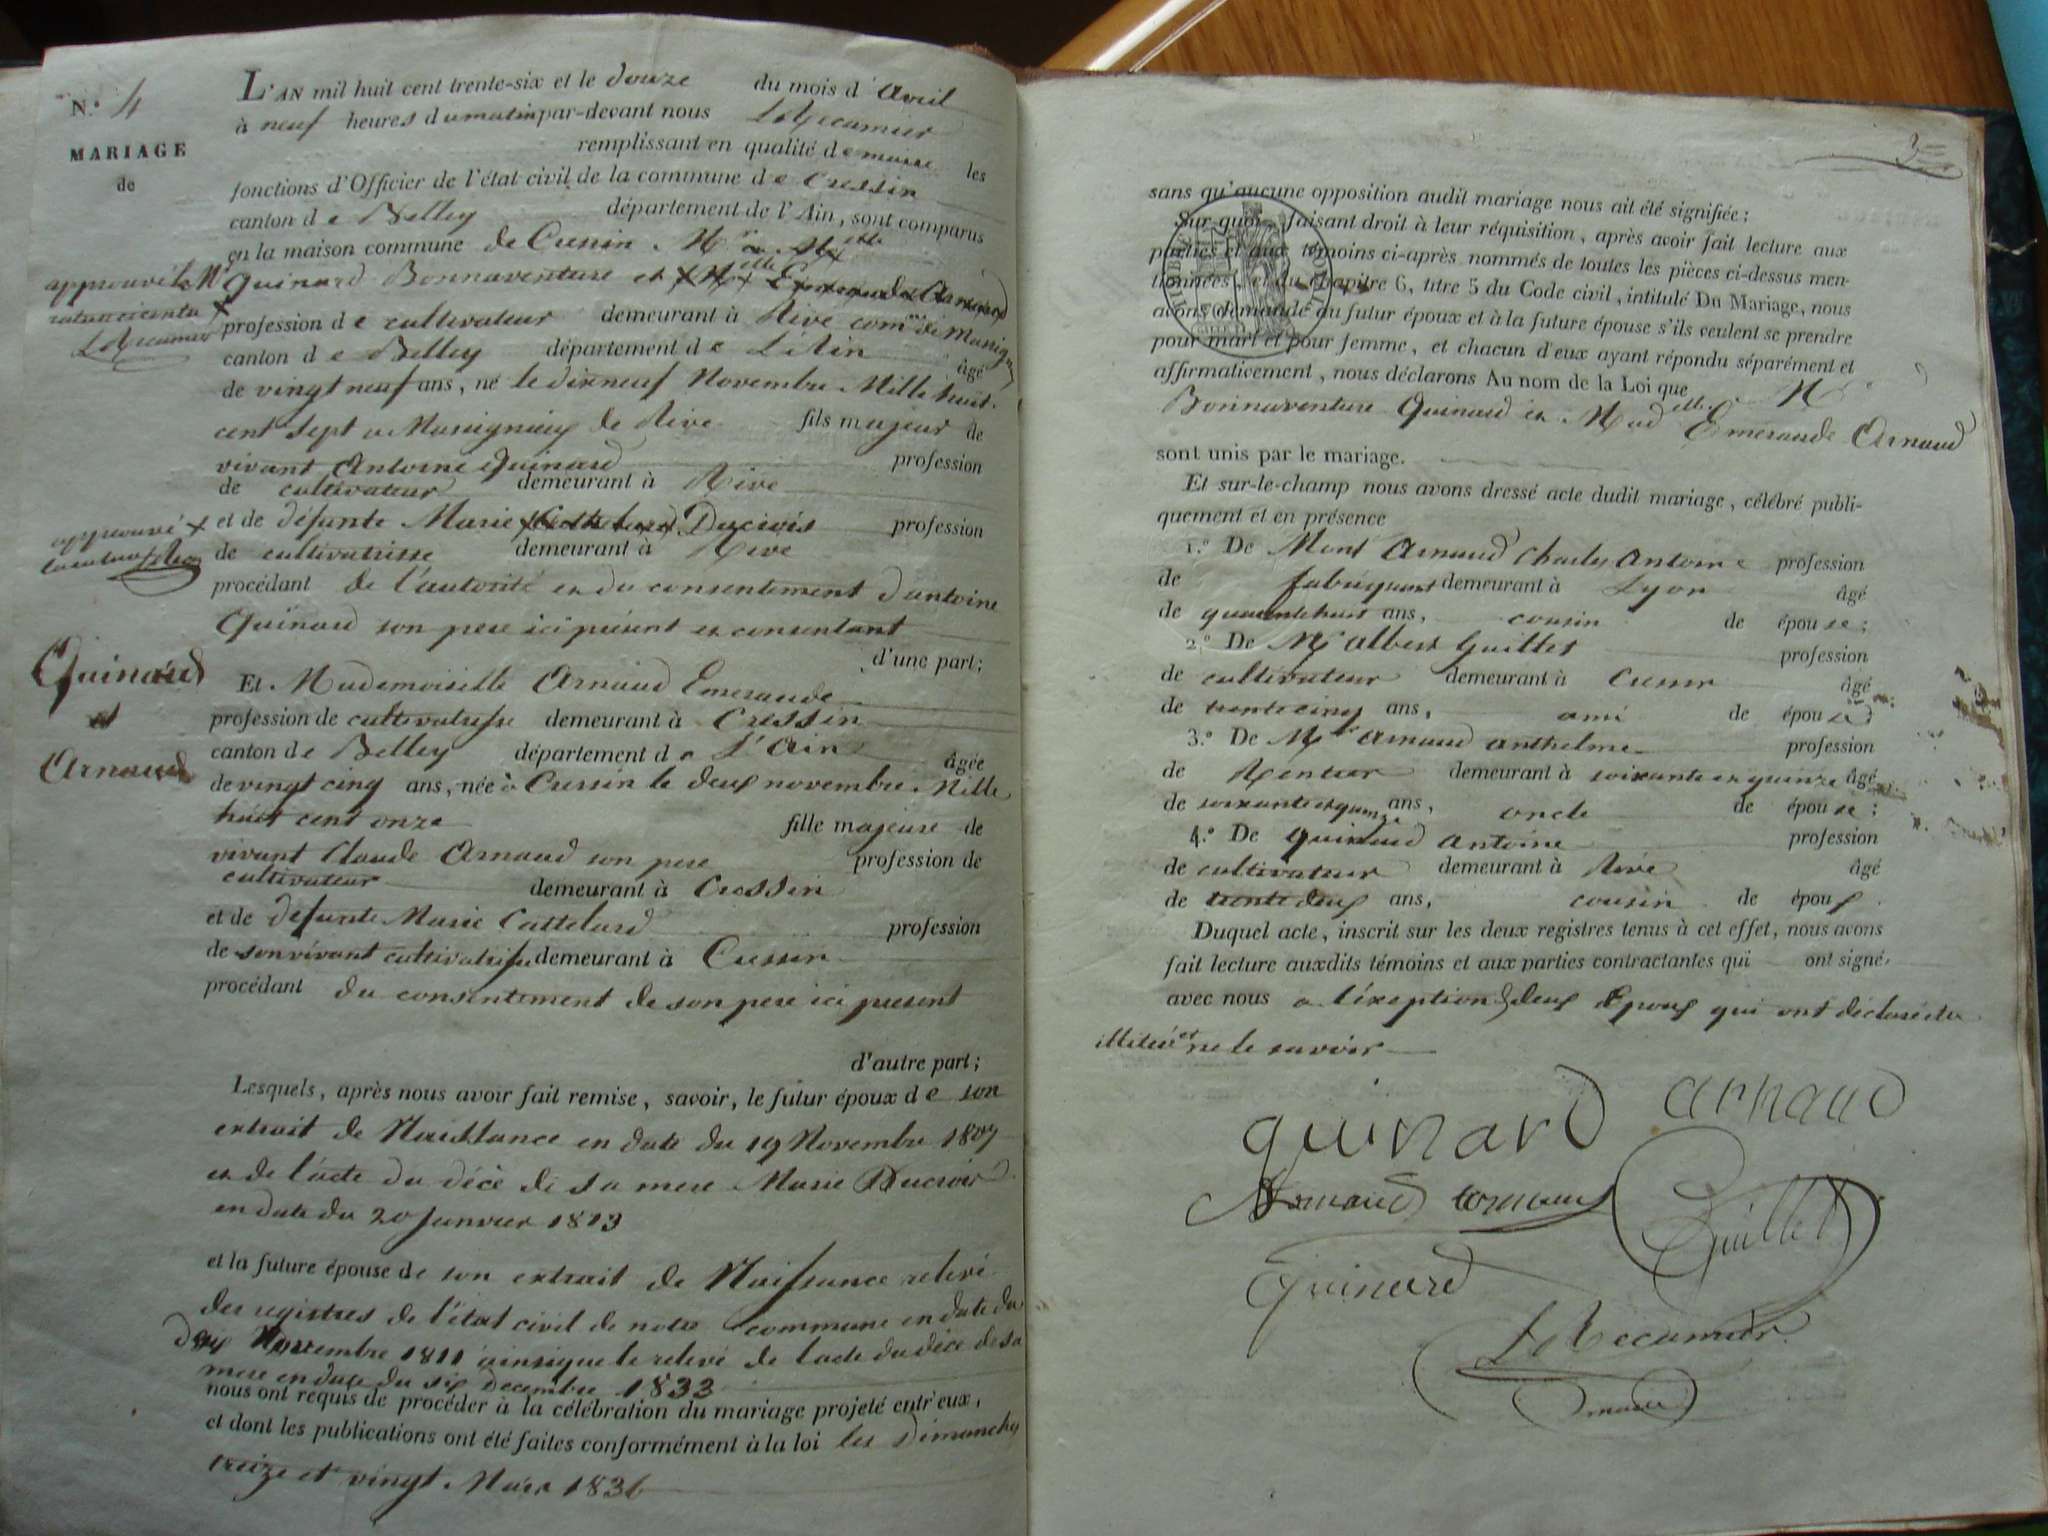 N.° 4
MARIAGE
de
L'AN mil huit cent trente-six et le douze du mois d'avril
à neuf heures du matin par-devant nous Récamier
remplissant en qualité de maire les
fonctions d'Officier de l'état civil de la commune de Cressin
canton de Belley département de l'Ain, sont comparus
en la maison commune de Cressin
Quinard Bonnaventure et
profession de cultivateur demeurant à Rive com.ne de Massigny
canton de Belley département de L'Ain âgé
de vingt neuf ans, né le dix neuf Novembre Mille huit
cent sept a Massignieu de Rive fils majeur de
vivant Antoine Quinard profession
de cultivateur demeurant à Rive
et de défunte Marie profession
de cultivatrisse demeurant à Rive
procédant de l'autorité et du consentement d'antoine
Quinard son pere ici présent et consentant
d'une part;
Quinard
et
Arnaud
Et Mademoiselle Arnaud Emeraude
profession de cultivatrisse demeurant à Cressin
canton de Belley département de L'Ain âgée
de vingt cinq ans, née à Cressin le deux novembre Mille
huit cent onze fille majeure de
vivant Claude Arnaud son pere profession de
cultivateur demeurant à Cressin
et de defunte Marie Cattelard profession
de son vivant cultivatrisse demeurant à Cressin
procédant du consentement de son pere ici present
d'autre part;
Lesquels, après nous avoir fait remise, savoir, le futur époux de son
extrait de Naissance en date du 19 Novembre 1807
et de l'acte du décè de sa mere Marie
en date du 20 Janvier 1813
et la future épouse de son extrait de Naissance relevé
des registres de l'état civil de notre commune en date du
deux Novembre 1811 ainsi que le relevé de l'acte du décè de sa
mere en date du six decembre 1833
nous ont requis de procéder à la célébration du mariage projeté entr'eux,
et dont les publications ont été faites conformément à la loi les dimanches
treize et vingt Mars 1836
3
sans qu'aucune opposition audit mariage nous ait été signifiée;
Sur quoi, faisant droit à leur réquisition, après avoir fait lecture aux
parties et aux témoins ci-après nommés de toutes les pièces ci-dessus men-
tionnées, et du chapitre 6, titre 5 du Code civil, intitulé Du Mariage, nous
avons demandé au futur époux et à la future épouse s'ils veulent se prendre
pour mari et pour femme, et chacun d'eux ayant répondu séparément et
affirmativement, nous déclarons Au nom de la Loi que Mr
Bonnaventure Quinard et Mad.elle Emeraude Arnaud
sont unis par le mariage.
Et sur-le-champ nous avons dressé acte dudit mariage, célébré publi-
quement et en présence
1.° De Mons.r Arnaud Charles Antoine profession
de fabriquant demeurant à Lyon âgé
de quarante huit ans, cousin de épouse;
2.° De Mr albert Guillet profession
de cultivateur demeurant à Cressin âgé
de trente cinq ans, ami de épouse
3.° De Mr Arnaud anthelme profession
de Rentier demeurant à soixante et quinze âgé
de soixante et quinze ans, oncle de épouse;
4.° De Quinard Antoine profession
de cultivateur demeurant à Rive âgé
de trente deux ans, cousin de époux
Duquel acte, inscrit sur les deux registres tenus à cet effet, nous avons
fait lecture auxdits témoins et aux parties contractantes qui ont signé
avec nous a l'exeption des deux Epoux qui ont déclaré etre
illiteré et ne le savoir
quinard arnaud
Arnaud Guillet
Quinard
Récamier
maire